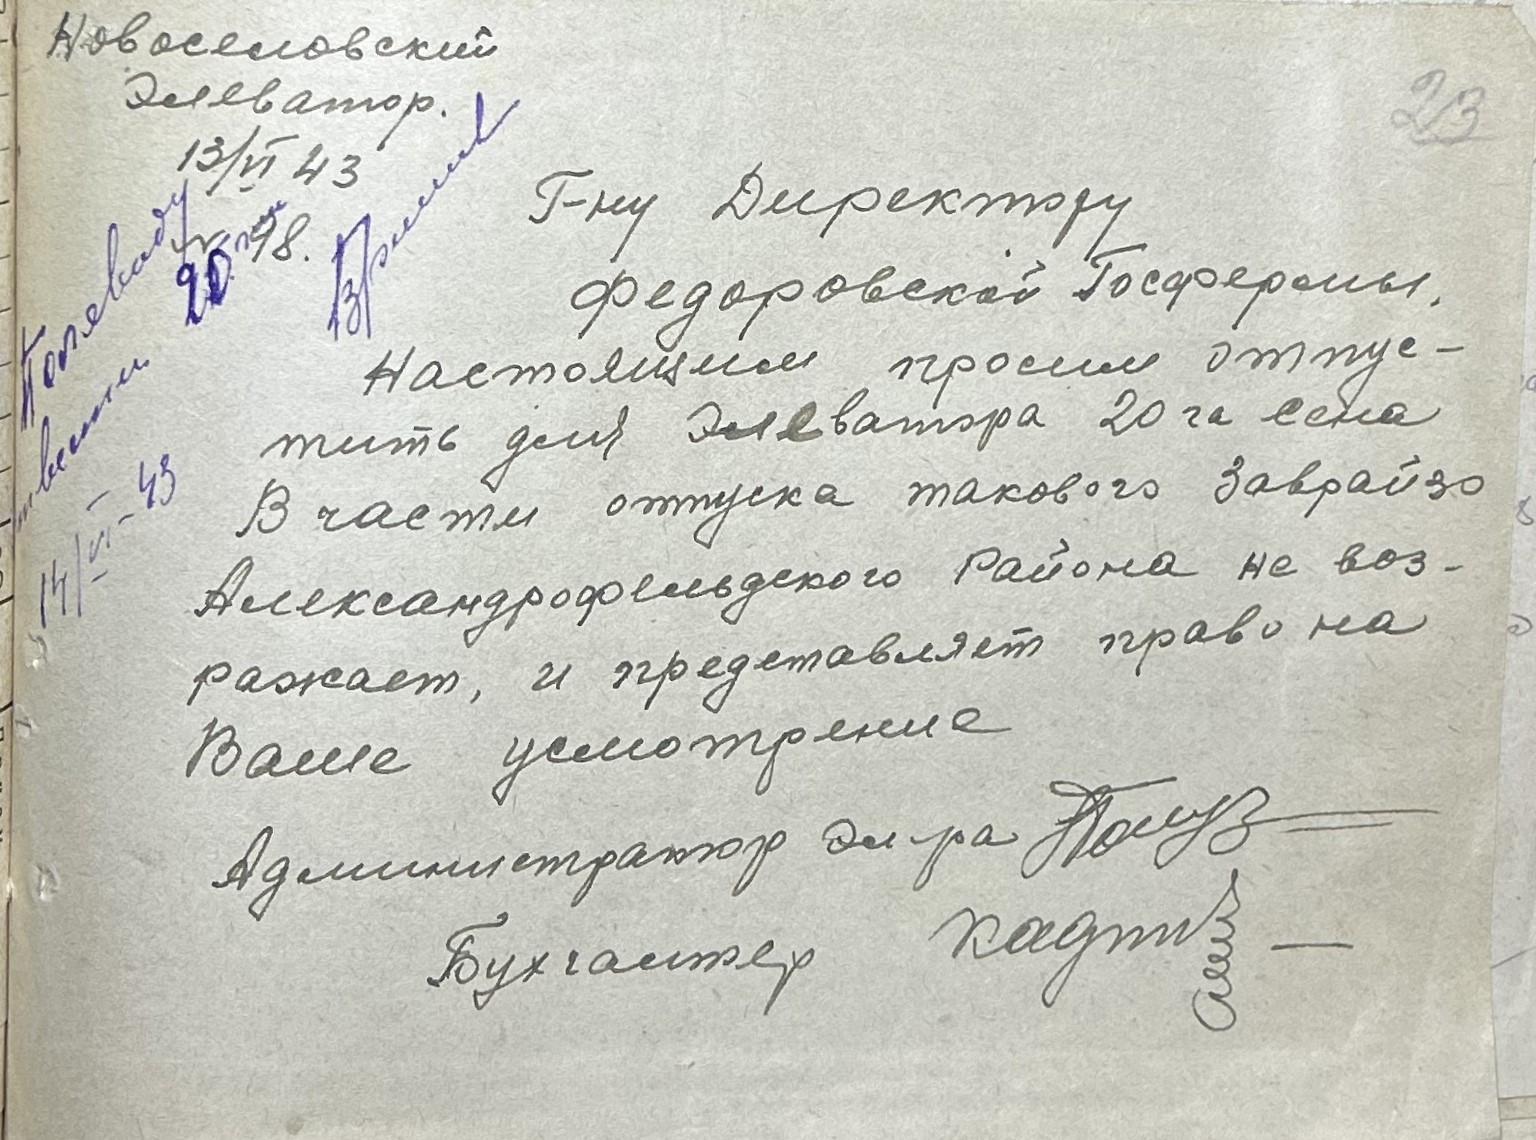 Новоселовский
Элеватор.
13/VI 43
№ 98.
23
Г-ну Директору
Федоровской Госфермы.
Настоящим просим отпус-
тить для Элеватора 20 га сена
В части отпуска такового Заврайзо
Александрофельдского Района не воз-
ражает, и представляет право на
Ваше усмотрение
Администратор Эл-ра
Бухгалтер
Полеводу
20
14/VI-43